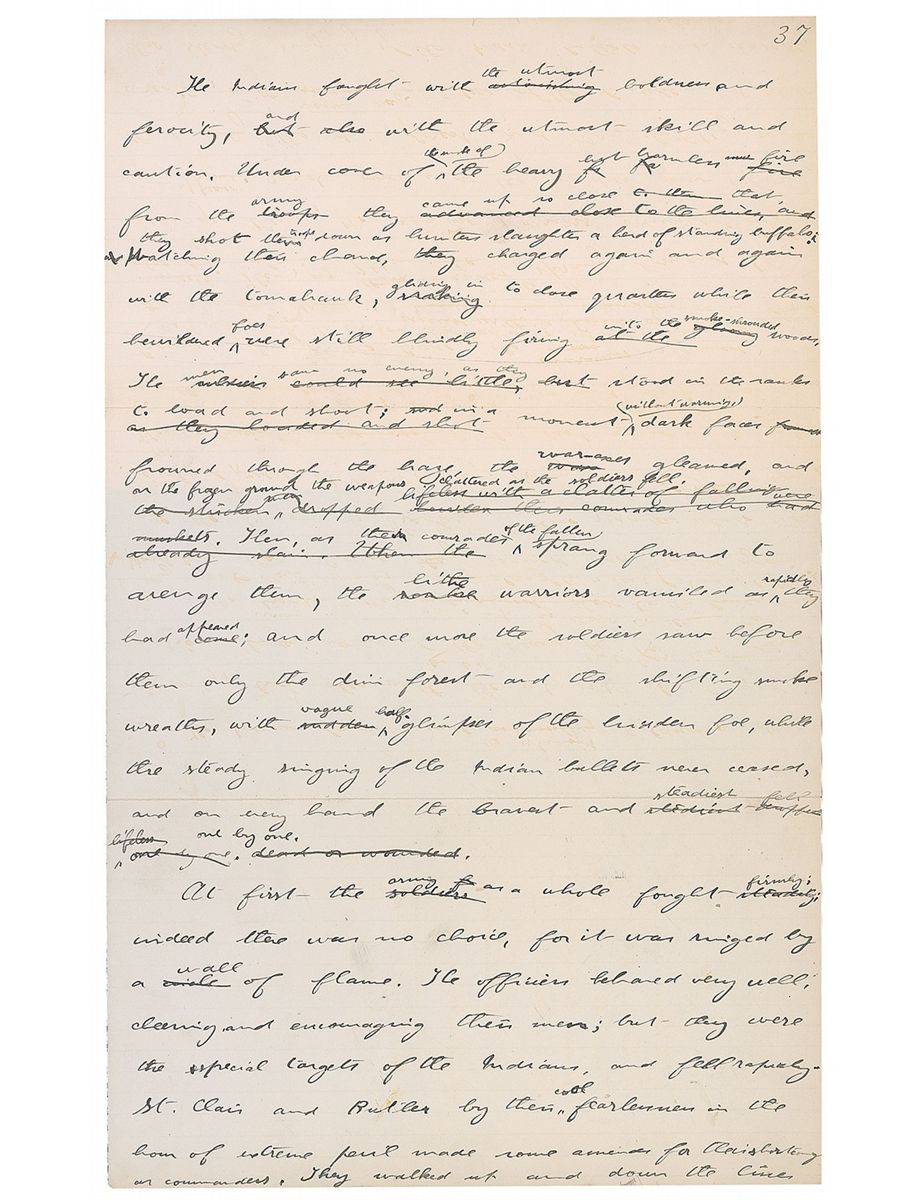 37
the utmost
The Indians fought with astonishing boldness and
and
ferocity, but also with the utmost skill and
the smoke of but harmless fire
caution. Under cover of the heavy fire
army came up so close to them that
from the troops they advanced close to the lines, and
they shot the troops down as hunters slaughter a herd of standing buffalo;
Watching their chance, they charged again and again
gliding in
with the tomahawk, to close quarters while their
foes into the smoke-shrouded
bewildered were still blindly firing at the woods.
men saw no enemy, as they
The soldiers could see little, but stood in the ranks
to load and shoot; and in a moment (without warning,) dark faces
as they loaded and shot
war-axes
frowned through the haze, the gleamed, and
on the frozen ground the weapons clattered as the soldiers fell.
the stricken men dropped lifeless with a clatter of falling
beside their comrades who had were
muskets. Then, as their comrades of the fallen sprang forward to
already slain. When the
lithe rapidly
avenge them, the warriors vanished as they
appeared
had come; and once more the soldiers saw before
them only the dim forest and the shifting smoke
vague half-
wreaths, with sudden glimpses of the hidden foe, while
the steady singing of the Indian bullets never ceased,
steadiest fell
and on every hand the bravest and steadiest dropped
lifeless one by one.
one by one. dead or wounded.
army firmly;
At first the soldiers as a whole fought steadily;
indeed there was no choice, for it was ringed by
wall
a circle of flame. The officers behaved very well,
cheering and encouraging their men; but they were
the especial targets of the Indians, and fell rapidly.
cool
St. Clair and Butler by their fearlessness in the
hour of extreme peril made some amends for their shortcomings
as commanders. They walked up and down the lines